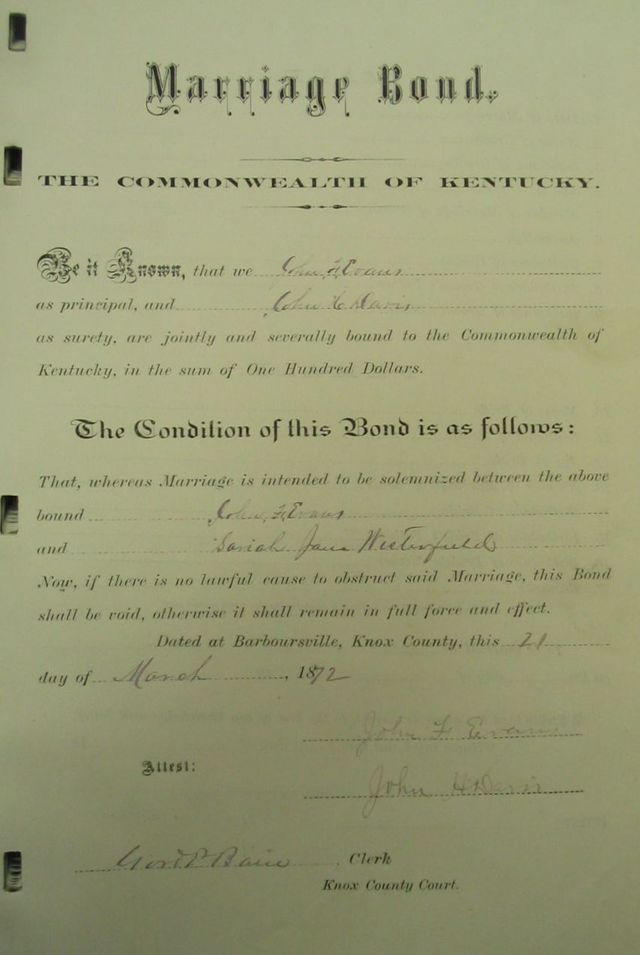 Marriage Bond.
THE COMMONWEALTH OF KENTUCKY.
Be it Known, that we John F Evans
as principal, and John H Davis
as surety, are jointly and severally bound to the Commonwealth of
Kentucky, in the sum of One Hundred Dollars.
The Condition of this Bond is as follows:
That, whereas Marriage is intended to be solemnized between the above
bound John F Evans
and Sariah Jane Westerfield
Now, if there is no lawful cause to obstruct said Marriage, this Bond
shall be void, otherwise it shall remain in full force and effect.
Dated at Barboursville, Knox County, this 21
day of March, 1872
John F Evans
Attest:
John H Davis
Clerk
Knox County Court.